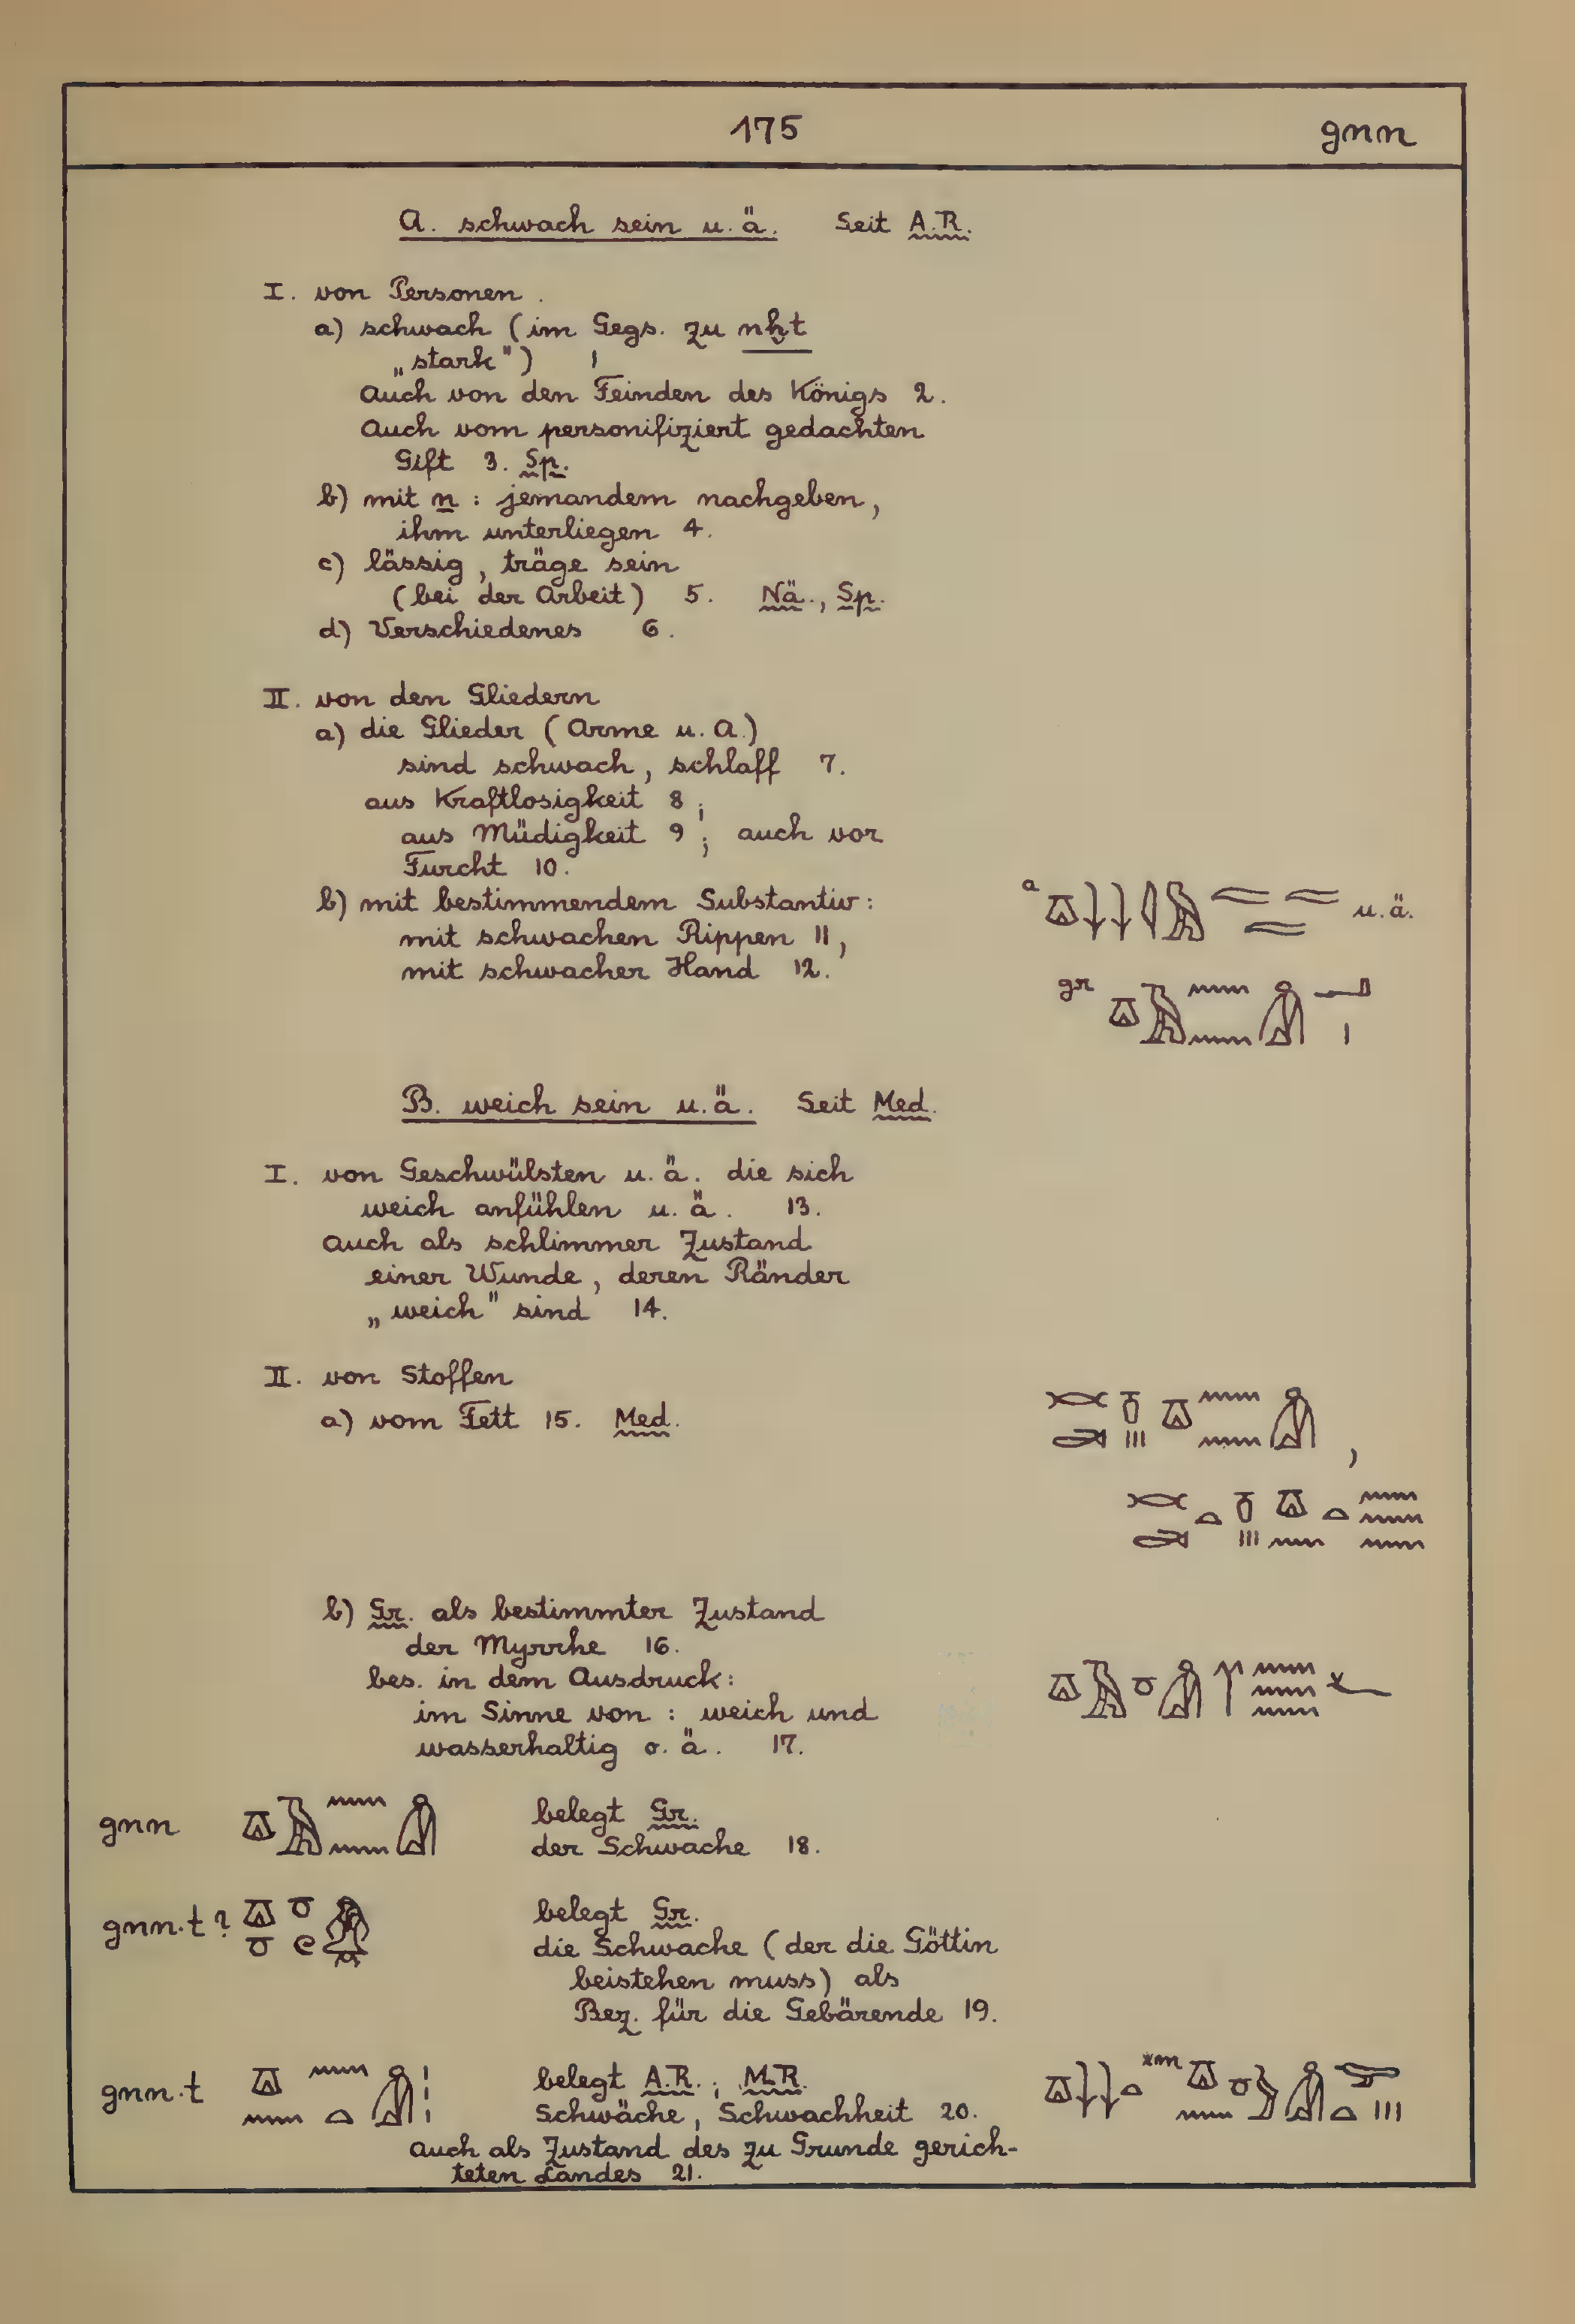 175 gnn
A. schwach sein u. ä. Seit A.R.
I. von Personen.
a) schwach (im Gegs. zu nḫt
„stark") 1
Auch von den Feinden des Königs 2.
Auch vom personifiziert gedachten
Gift 3. Sp.
b) mit n : jemandem nachgeben,
ihm unterliegen 4.
c) lässig, träge sein
(bei der Arbeit) 5. Nä., Sp.
d) Verschiedenes 6.
II. von den Gliedern
a) die Glieder (Arme u. A.)
sind schwach, schlaff 7.
aus Kraftlosigkeit 8;
aus Müdigkeit 9; auch vor
Furcht 10.
b) mit bestimmendem Substantiv:
a u. ä.
mit schwachen Rippen 11,
mit schwacher Hand 12.
gr
B. weich sein u. ä. Seit Med.
I. von Geschwülsten u. ä. die sich
weich anfühlen u. ä. 13.
Auch als schlimmer Zustand
einer Wunde, deren Ränder
„weich" sind 14.
II. von Stoffen
a) vom Fett 15. Med.
b) Gr. als bestimmter Zustand
der Myrrhe 16.
bes. in dem Ausdruck:
im Sinne von : weich und
wasserhaltig o. ä. 17.
gnn belegt Gr.
der Schwache 18.
gnn.t? belegt Gr.
die Schwache (der die Göttin
beistehen muss) als
Bez. für die Gebärende 19.
gnn.t belegt A.R.; M.R.
Schwäche, Schwachheit 20.
Auch als Zustand des zu Grunde gerich-
teten Landes 21.